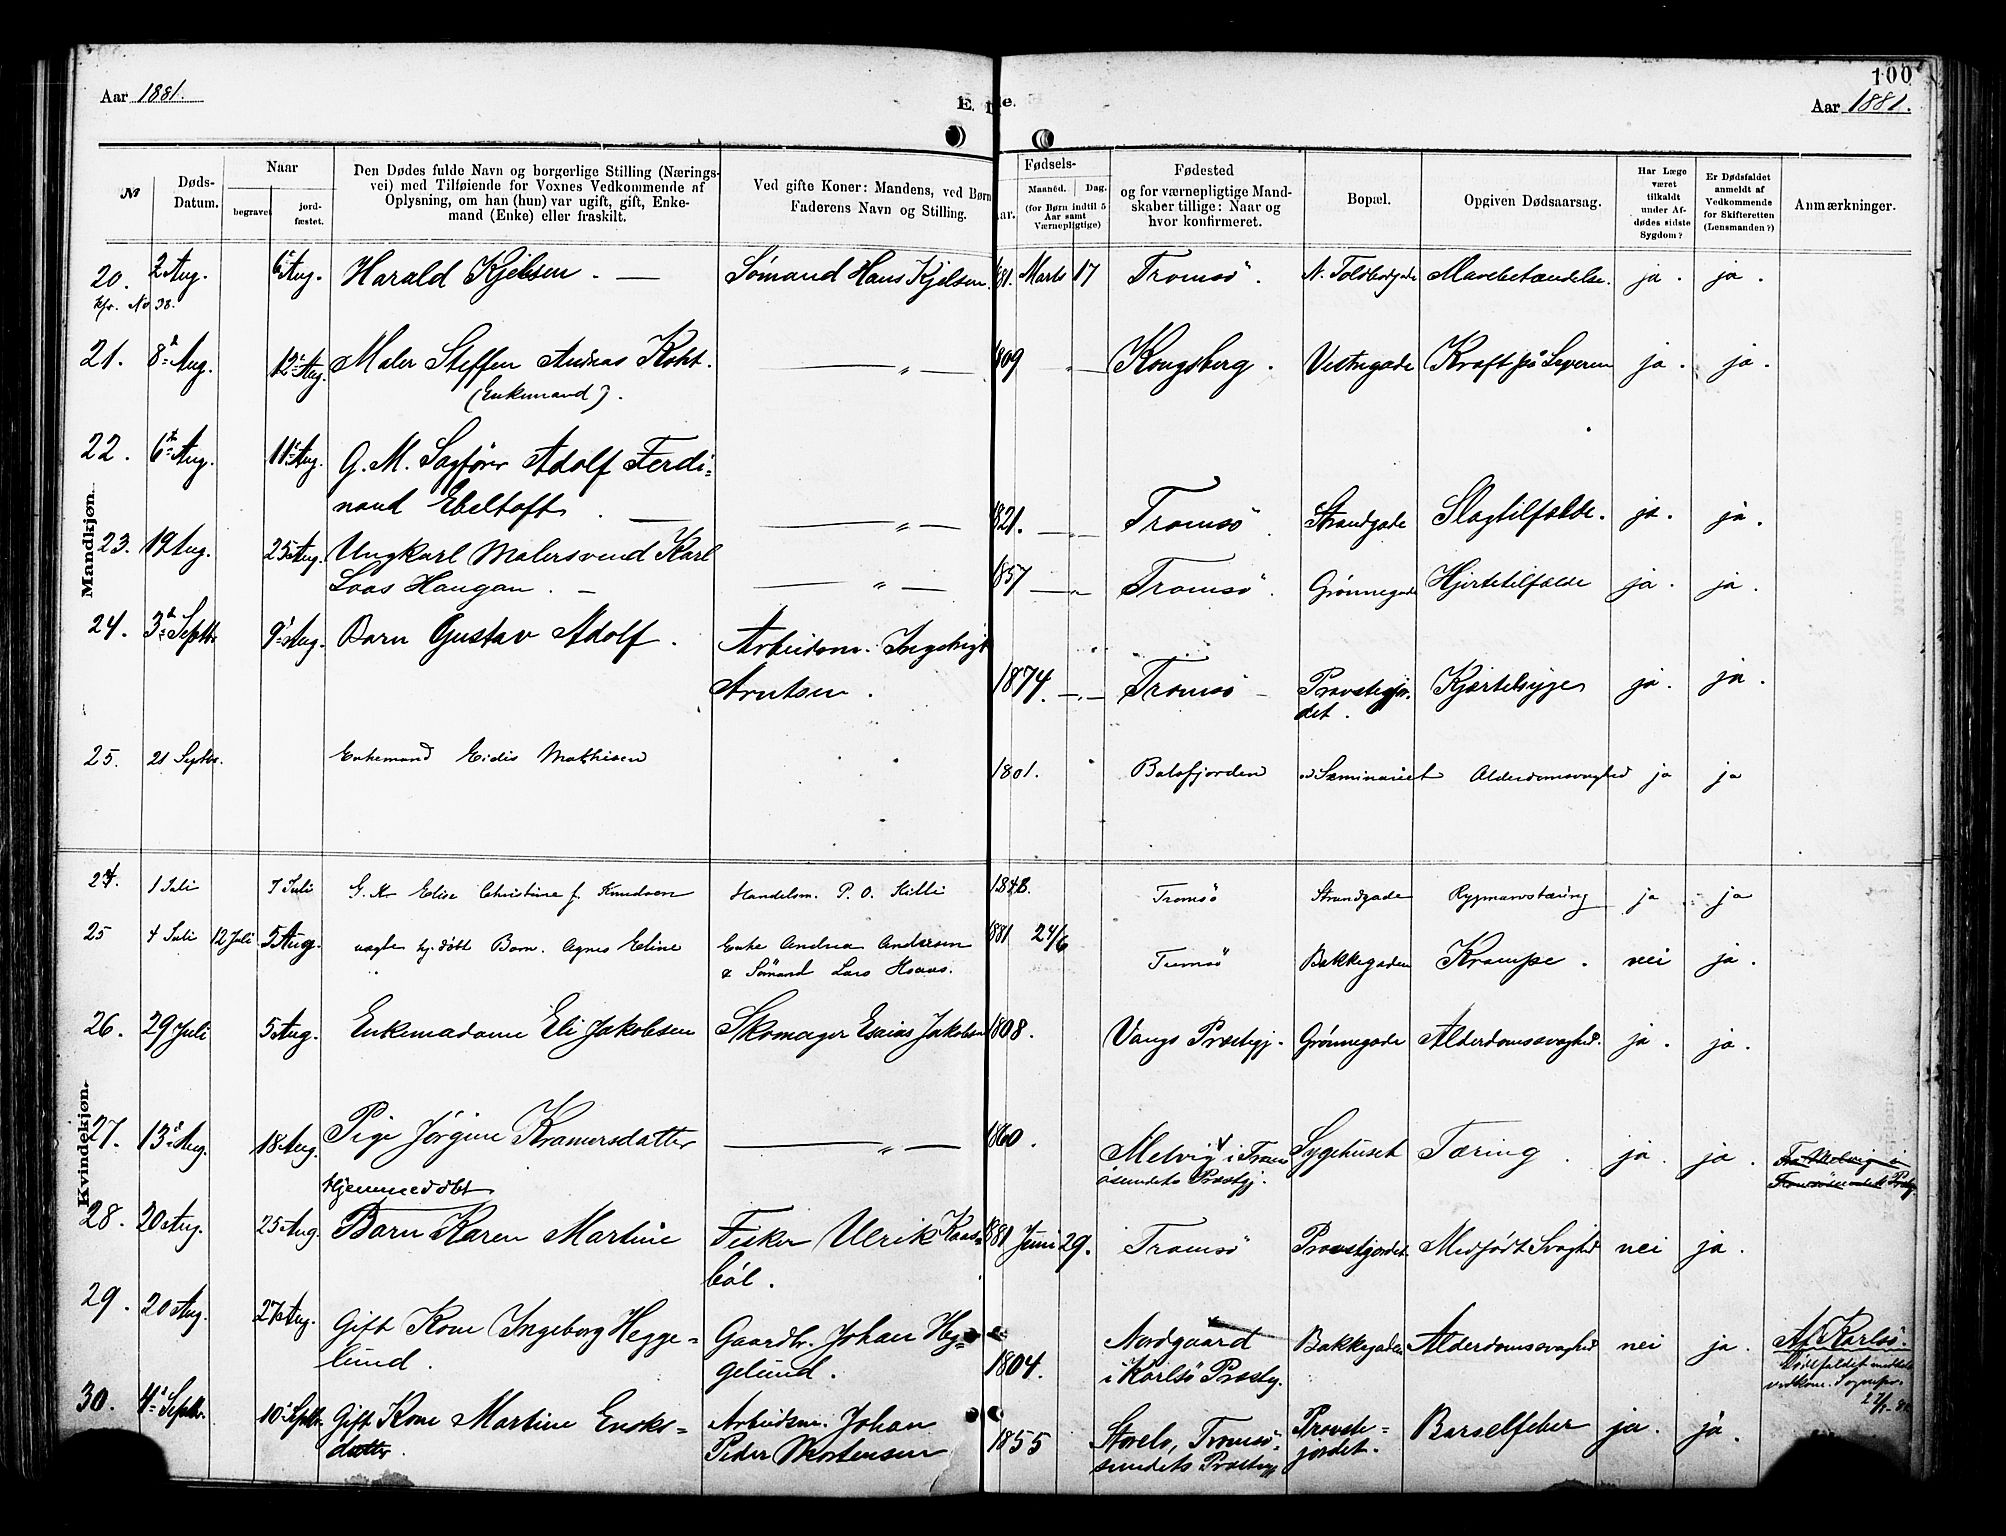 100
Aar 1881.
Aar 1881.
E.
de.
№
Døds-
Datum.
Naar
begravet
jord-
fæstet.
Den Dødes fulde Navn og borgerlige Stilling (Nærings-
vei) med Tilføiende for Voxnes Vedkommende af
Oplysning, om han (hun) var ugift, gift, Enke-
mand (Enke) eller fraskilt.
Ved gifte Koner: Mandens, ved Børn
Faderens Navn og Stilling.
Fødsels-
Aar.
Maaned.
Dag.
(for Børn indtil 5
Aar samt
Værnepligtige)
Fødested
og for værnepligtige Mand-
skaber tillige: Naar og
hvor konfirmeret.
Bopæl.
Opgiven Dødsaarsag.
Har Læge
været
tilkaldt
under Af-
dødes sidste
Sygdom?
Er Dødsfaldet
anmeldt af
Vedkommende
for Skifteretten
(Lensmanden?)
Anmærkninger.
Mandkjøn.
20. 2 Aug. 6 Aug. Harald Kjelsen. — Sømand Hans Kjelsen. 881. Marts 17 Tromsø. N. Toldbodgade Mavebetændelse. ja. ja.
Kfr. No 38.
21. 8de Aug. 12te Aug. Maler Steffen Andreas Koht. — „ — 809 „ — Kongsberg. Vestregade Kræft på Leveren ja. ja.
(Enkemand).
22. 6te Aug. 11te Aug. G. M. Sagfører Adolf Ferdi=
nand Ebeltoft. — — „ — 821. — „ — Tromsø. Strandgade Slagtilfælde. ja. ja.
23. 19 Aug. 25 Aug. Ungkarl Malersvend Karl
Loos Haugan. — — „ — 857 — „ Tromsø. Grønnegade Hjertetilfælde ja. ja
24. 3de Septbr 9de Aug. Barn Gustav Adolf. Arbeidsm. Ingebrigt
Arntsen. 1874. — „ — Tromsø — Provstegjor-
det. Kjertelsyge ja. ja.
25. 21 Septbr. Enkemand Eidis Mathisen 1801. Balsfjorden v. Seminariet Alderdomssvaghed ja ja
Kvindekjøn.
24. 1 Juli 7 Juli G. K. Elise Christine f. Knudsen Handelsm. P. O. Killi 1848. Tromsø Strandgade Rygmarvstæring ja ja
25 4 Juli 12 Juli 5 Aug. uægte hj. døbt Barn. Agnes Eline Enke Andrea Andersen 881 24/6 Tromsø Bakkegaden Krampe. nei ja.
& Sømand Lars Haaas.
26. 29 Juli 5 Aug. Enkemadame Eli Jakobsen Skomager Esaias Jakobsen 1808. Vangs Præstegj. Grønnegade Alderdomssvaghed. ja. ja.
27. 13de Aug. 18 Aug. Pige Jørgine Kramersdatter — „ — 1860. Melvig i Troms
øsundets Præstgj. Sygehuset Tæring. ja. ja. Fra Melvig i
Tromsøsundets Præstg.
Hjemmedøbt
28. 20 Aug. 25 Aug. Barn Karen Martine Fisker Ulrik Kaas=
bøl. 881 Juni 29. Tromsø Provstjordet Medfødt Svaghed nei ja.
29. 20 Aug. 27 Aug. Gift Kone Ingeborg Hegge=
lund. Gaardbr. Johan Heg=
gelund. 1804. Nordgaard
i Karlsø Præstg. Bakkegaden Alderdomssvaghed nei ja. Af Karlsø.
Dødsfaldet meddelt
vedkom. Sognepr.
30. 4de Septbr. 10de Septbr. Gift Kone Martine Enoks=
datter. Arbeidsm. Johan
Peder Mortensen 1855 Storelv, Tromsø=
sundets Præstegj Provste-
jordet. Barselfeber ja. ja.